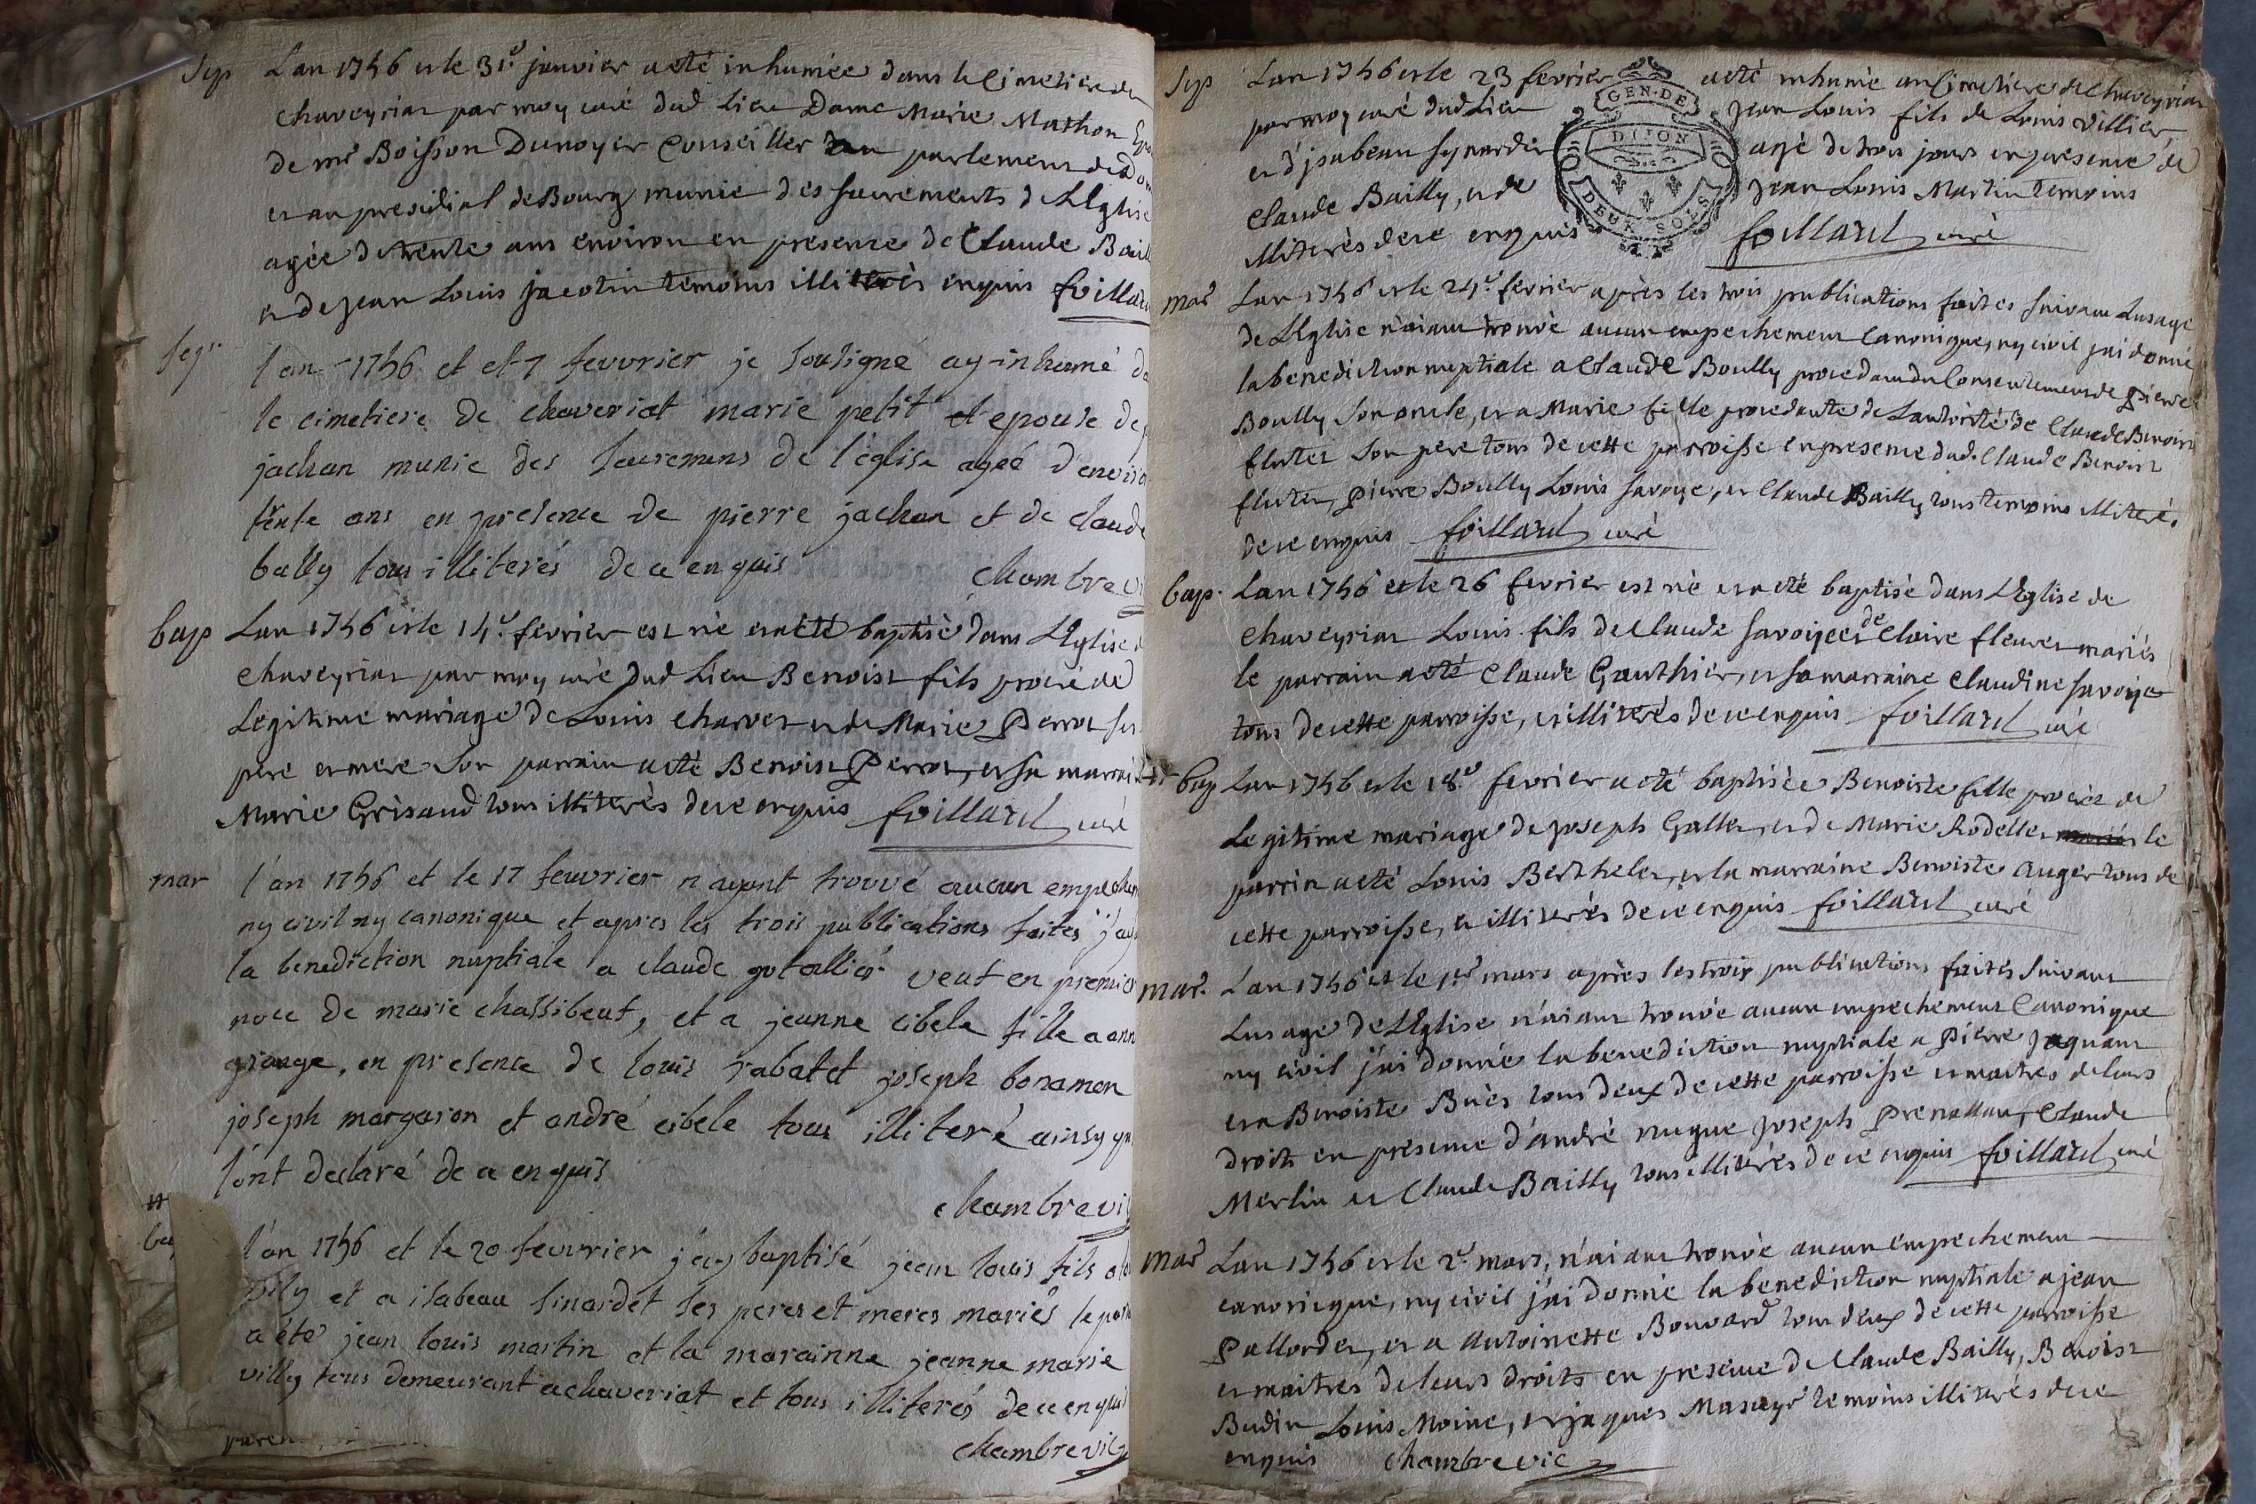 Sep
Lan 1756 et le 31e janvier a eté inhumée dans le Cimetiere de
Chaveyriat par moy curé dud Lieu Dame Marie Mathon Epo
de mr Boisson Dunoyer Conseiller au parlement de Do
et au presidial de Bourg munie des sacrements de L'Eglise
agée de trente ans environ en presence de Claude Baill
et de Jean Louis Jacotin temoins illiterès enquis foillar
Sep.
l'an 1756 et le 7 fevvrier je soussigné ay inhumé da
le cimetiere de chaveriat marie petit epouse de
jachan munie des sacremens de l'église ageé d'enviro
trente ans en presence de pierre jachan et de claude
bally tous illiterés de ce enquis chambrevi
bap
Lan 1756 et le 14e fevrier est né et a eté baptisè dans L'Eglise d
Chaveyriat par moy curé dud Lieu Benoist fils procréé de
Legitime mariage de Louis Charvet et de Marie Perrot ses
pere et mere son parrain a eté Benoist Perrot, et sa marrain
Marie Grisaud tous illiterès de ce enquis foillard curé
mar
l'an 1756 et le 17 feuvrier n'ayant trouvé aucun empechem
ny civil ny canonique et apres les trois publications faites j'ay
la benediction nuptiale a claude veuf en premier
noce de marie chassibout, et a jeanne cibele fille a ann
grange, en presence de louis rabatet joseph bonamon
joseph margaron et andré cibele tous illiteré ainsy qu
l'ont declaré de ce enquis
chambrevi
ba
l'an 1756 et le 20 feuvrier j'ay baptisé jean louis fils a lo
vily et a isabeau sinardet ses peres et meres mariés le par
a été jean louis martin et la marainne jeanne marie
villy tous demeurant a chaveriat et tous illiterés de ce enquis
chambrevic
Sep
Lan 1756 et le 23 fevrier a eté inhumé au Cimetiere de Chaveyriat
par moy curé dud Lieu Jean Louis fils de Louis Villier
et d'jsabeau Synardier agé de trois jours en presence de
Claude Bailly, et de Jean Louis Martin temoins
illiterès de ce enquis foillard curé
GEN. DE
DIJON
DEUX SOLS
mar
Lan 1756 et le 24e fevrier après les trois publications faites suivant Lusage
de L'Eglise n'aiant trouvè aucun empechement Canonique, ny civil j'ai donné
la benediction nuptiale a Claude Boully procedant du Consentement de Pierre
Boully son oncle, et a Marie fille procedante de Lautorité de Claude Benoist
flutet son pere tous de cette parroisse en presence dud. Claude Benoist
flutet, Pierre Boully Louis Savoye, et Claude Bailly tous temoins illiterés
de ce enquis foillard curè
bap.
Lan 1756 et le 26 fevrier est né et a eté baptisè dans L'Eglise de
Chaveyriat Louis fils de Claude Savoye et de Claire fleuret mariés
le parrain a eté Claude Gauthier, et sa marraine Claudine Savoye
tous de cette parroisse, et illiterés de ce enquis foillard curé
bap
Lan 1756 et le 18e fevrier a eté baptisée Benoiste fille procréé de
Legitime mariage de Joseph Gallet, et de Marie Rodellet le
parrin a eté Louis Berthelet, et la marraine Benoiste Auger tous de
cette parroisse, et illiterés de ce enquis foillard curé
mar.
Lan 1756 et le 1er mars après les trois publications faites suivant
Lusage de L'Eglise n'aiant trouvée aucun empechement Canonique
ny civil j'ai donnée la benediction nuptiale a Pierre Jaquant
et a Benoiste Buès tous deux de cette parroisse et maitres de leurs
droits en presence d'andré nugue Joseph Prenallan, Claude
Merlin et Claude Bailly tous illiterés de ce enquis foillard curé
mar
Lan 1756 et le 2e mars, n'aiant trouvée aucun empechement
canonicque, ny civil j'ai donnée la benediction nuptiale a jean
Pallordet, et a Antoinette Bouvard tous deux de cette parroisse
et maitres de leurs droits en presence de Claude Bailly, Benoist
Budin Louis Moine, et jaques Masuyr temoins illiterés de ce
enquis chambrevic